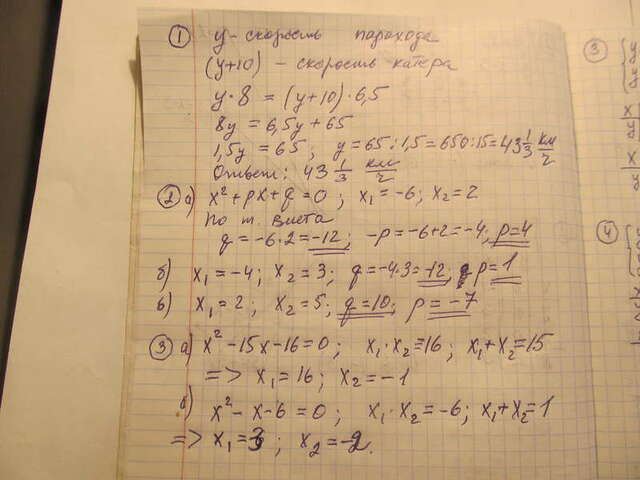 ① y - скорость парохода
(y+10) - скорость катера
y·8 = (y+10)·6,5
8y = 6,5y + 65
1,5y = 65; y = 65:1,5 = 650:15 = 43 1/3 км/ч
Ответ: 43 1/3 км/ч
② а) x² + px + q = 0; x₁ = -6; x₂ = 2
По т. Виета
q = -6·2 = -12; -p = -6+2 = -4; p = 4
б) x₁ = -4; x₂ = 3; q = -4·3 = -12; p = 1
в) x₁ = 2; x₂ = 5; q = 10; p = -7
③ а) x² - 15x - 16 = 0; x₁·x₂ = 16; x₁ + x₂ = 15
=> x₁ = 16; x₂ = -1
б) x² - x - 6 = 0; x₁·x₂ = -6; x₁ + x₂ = 1
=> x₁ = 3; x₂ = -2.
3
4